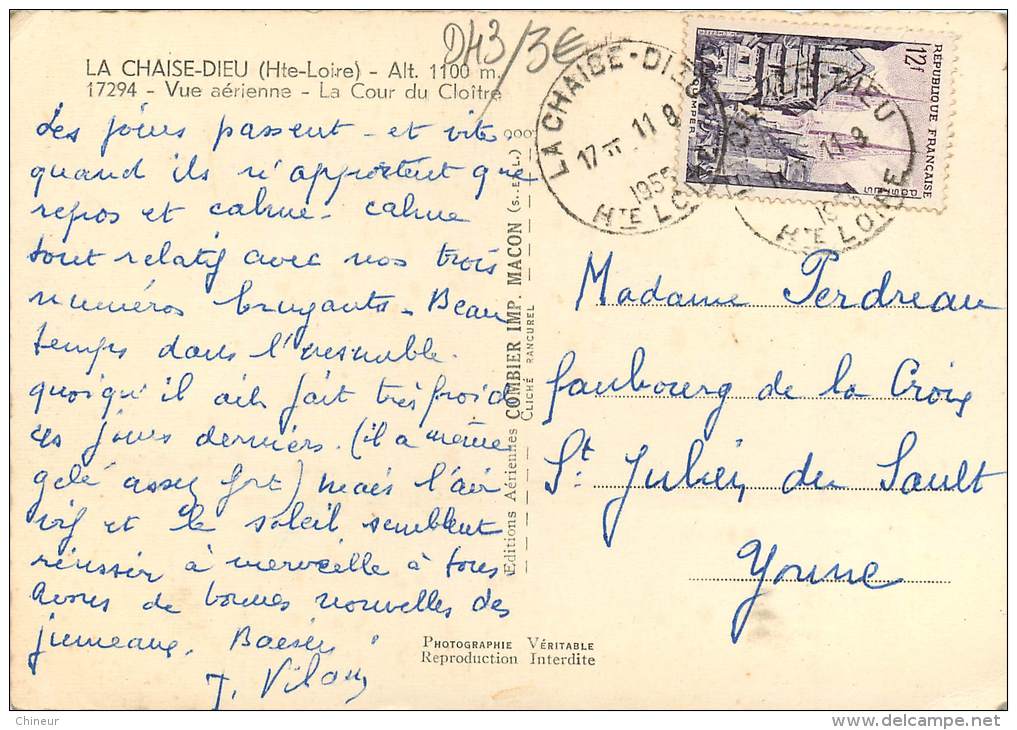 D43/3€
LA CHAISE-DIEU (Hte-Loire) - Alt. 1100 m.
17294 - Vue aérienne - La Cour du Cloître
Les jours passent - et vite
quand ils n'apportent que
repos et calme - calme
tout relatif avec nos trois
numéros bruyants. Beau
temps dans l'ensemble.
quoiqu'il ait fait très froid
ces jours derniers. (il a même
gelé assez fort) mais l'air
vif et le soleil semblent
réussir à merveille à tous
Avons de bonnes nouvelles des
jumeaux. Baisers
Editions Aériennes COMBIER IMP. MACON (S.E.L.)
CLICHÉ RANCUREL
PHOTOGRAPHIE VÉRITABLE
Reproduction Interdite
LA CHAISE-DIEU
17 H 11 8
1955
HTE LOIRE
11 8
HTE LOIRE
REPUBLIQUE FRANÇAISE
12f
POSTES
Madame Perdreau
faubourg de la Croix
St Julien du Sault
Yonne
Chineur
delcampe.net